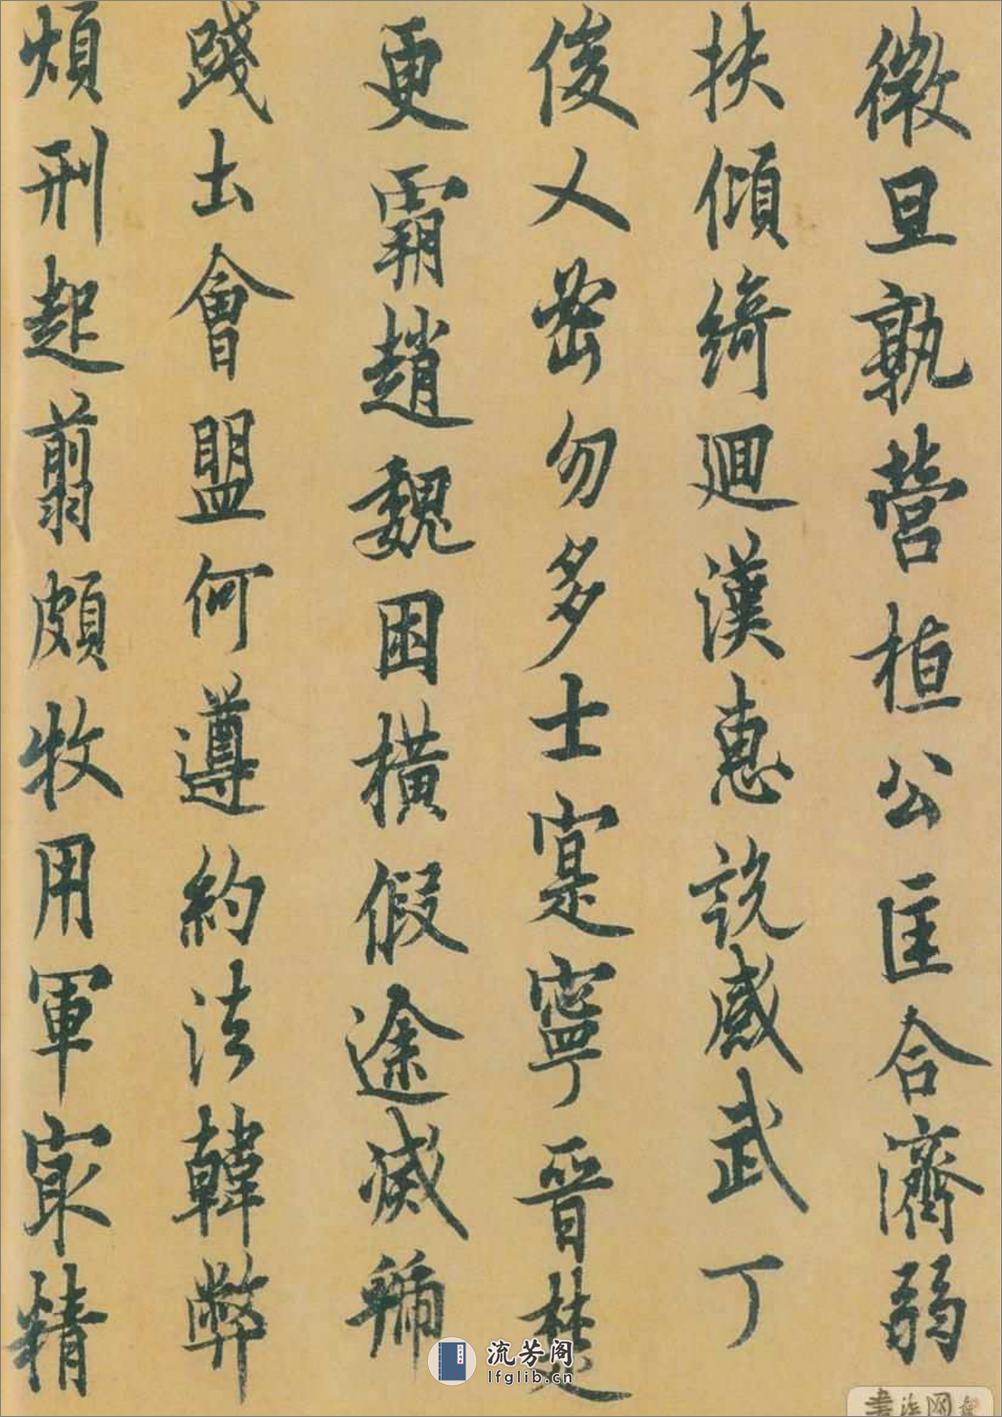 微旦孰營植公匡合濟弱
扶傾綺迴漢惠說感武丁
俊乂密勿多士寔寧晉楚
更霸趙魏困橫假途滅虢
踐土會盟何遵約法韓弊
煩刑起翦頗牧用軍最精
流芳阁
lfglib.cn
書法网